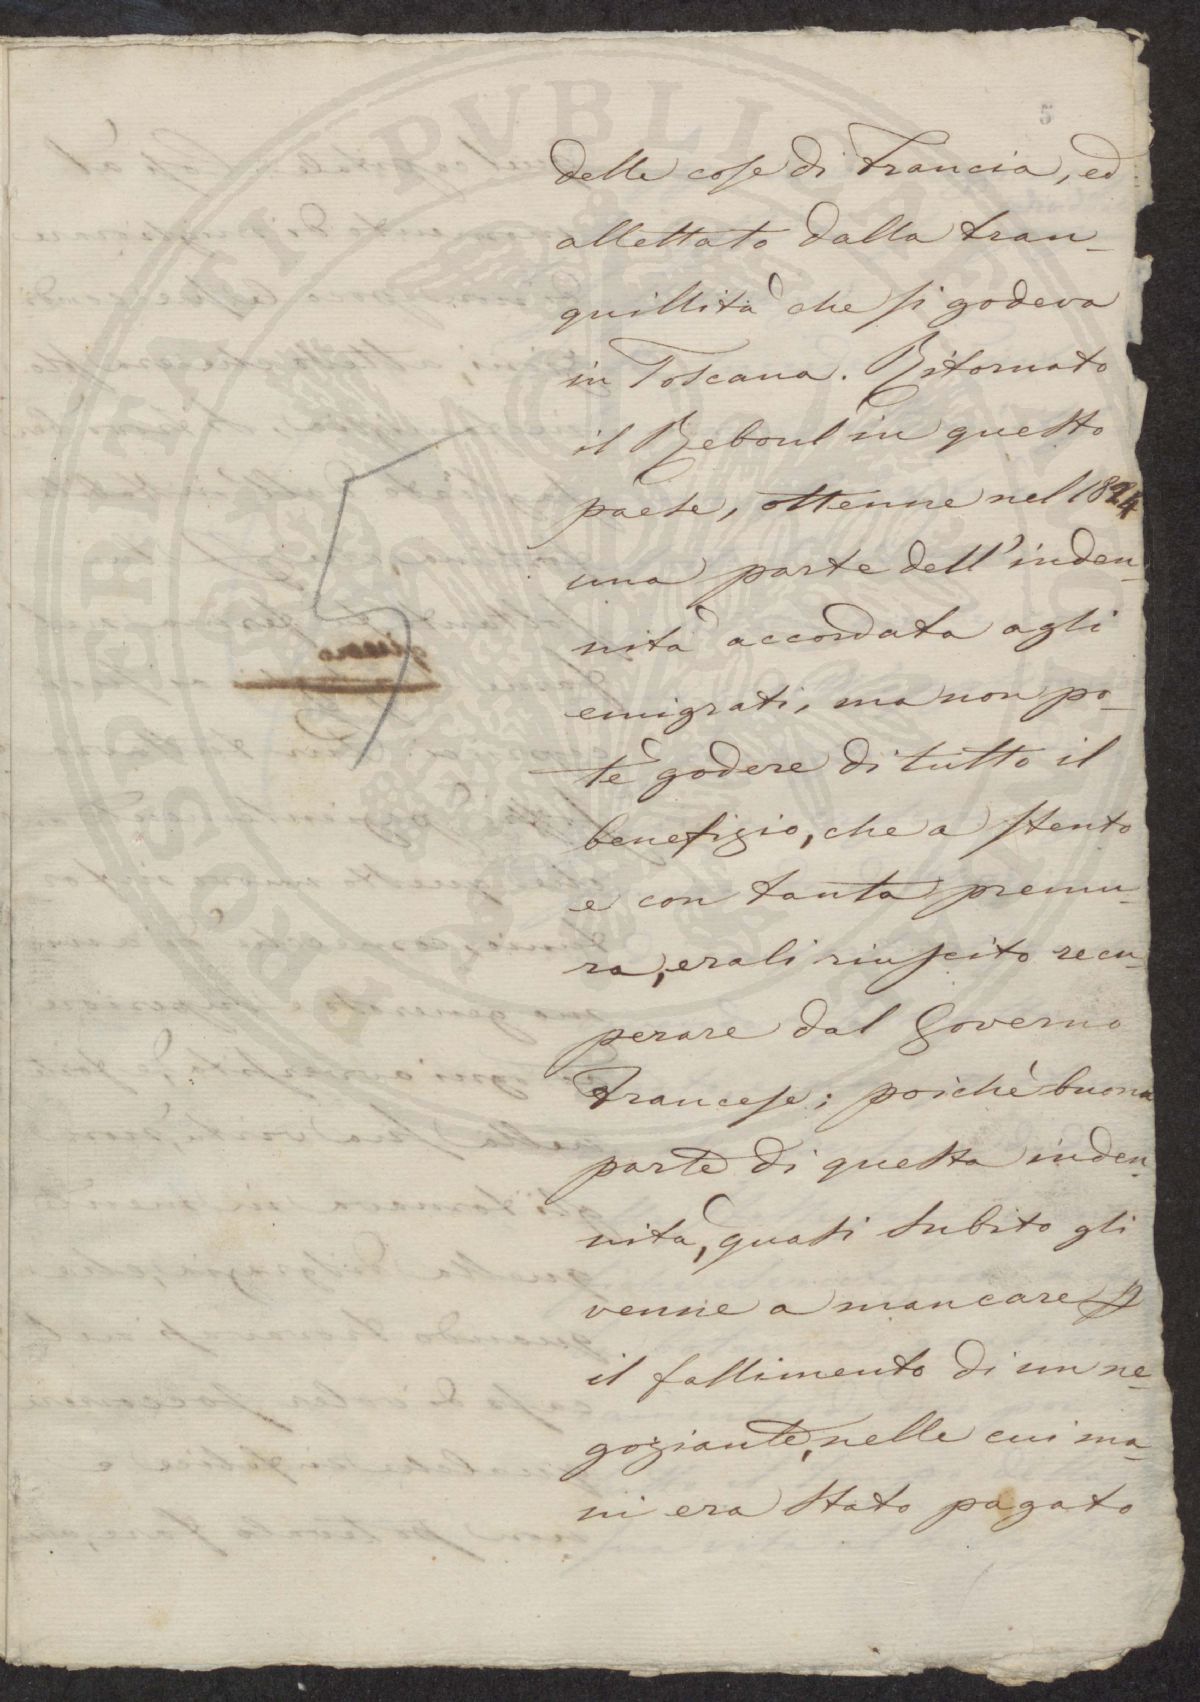 5
delle cose di Francia, ed
allettato dalla tran-
quillità che si godeva
in Toscana. Ritornato
il Reboul in questo
paese, ottenne nel 1824
una parte dell'inden-
nità accordata agli
emigrati, ma non po-
tè godere di tutto il
benefizio, che a stento
e con tanta premu-
ra, erali riuscito recu-
perare dal Governo
Francese; poichè buona
parte di questa inden-
nità, quasi subito gli
venne a mancare p
il fallimento di un ne-
goziante, nelle cui ma-
ni era stato pagato